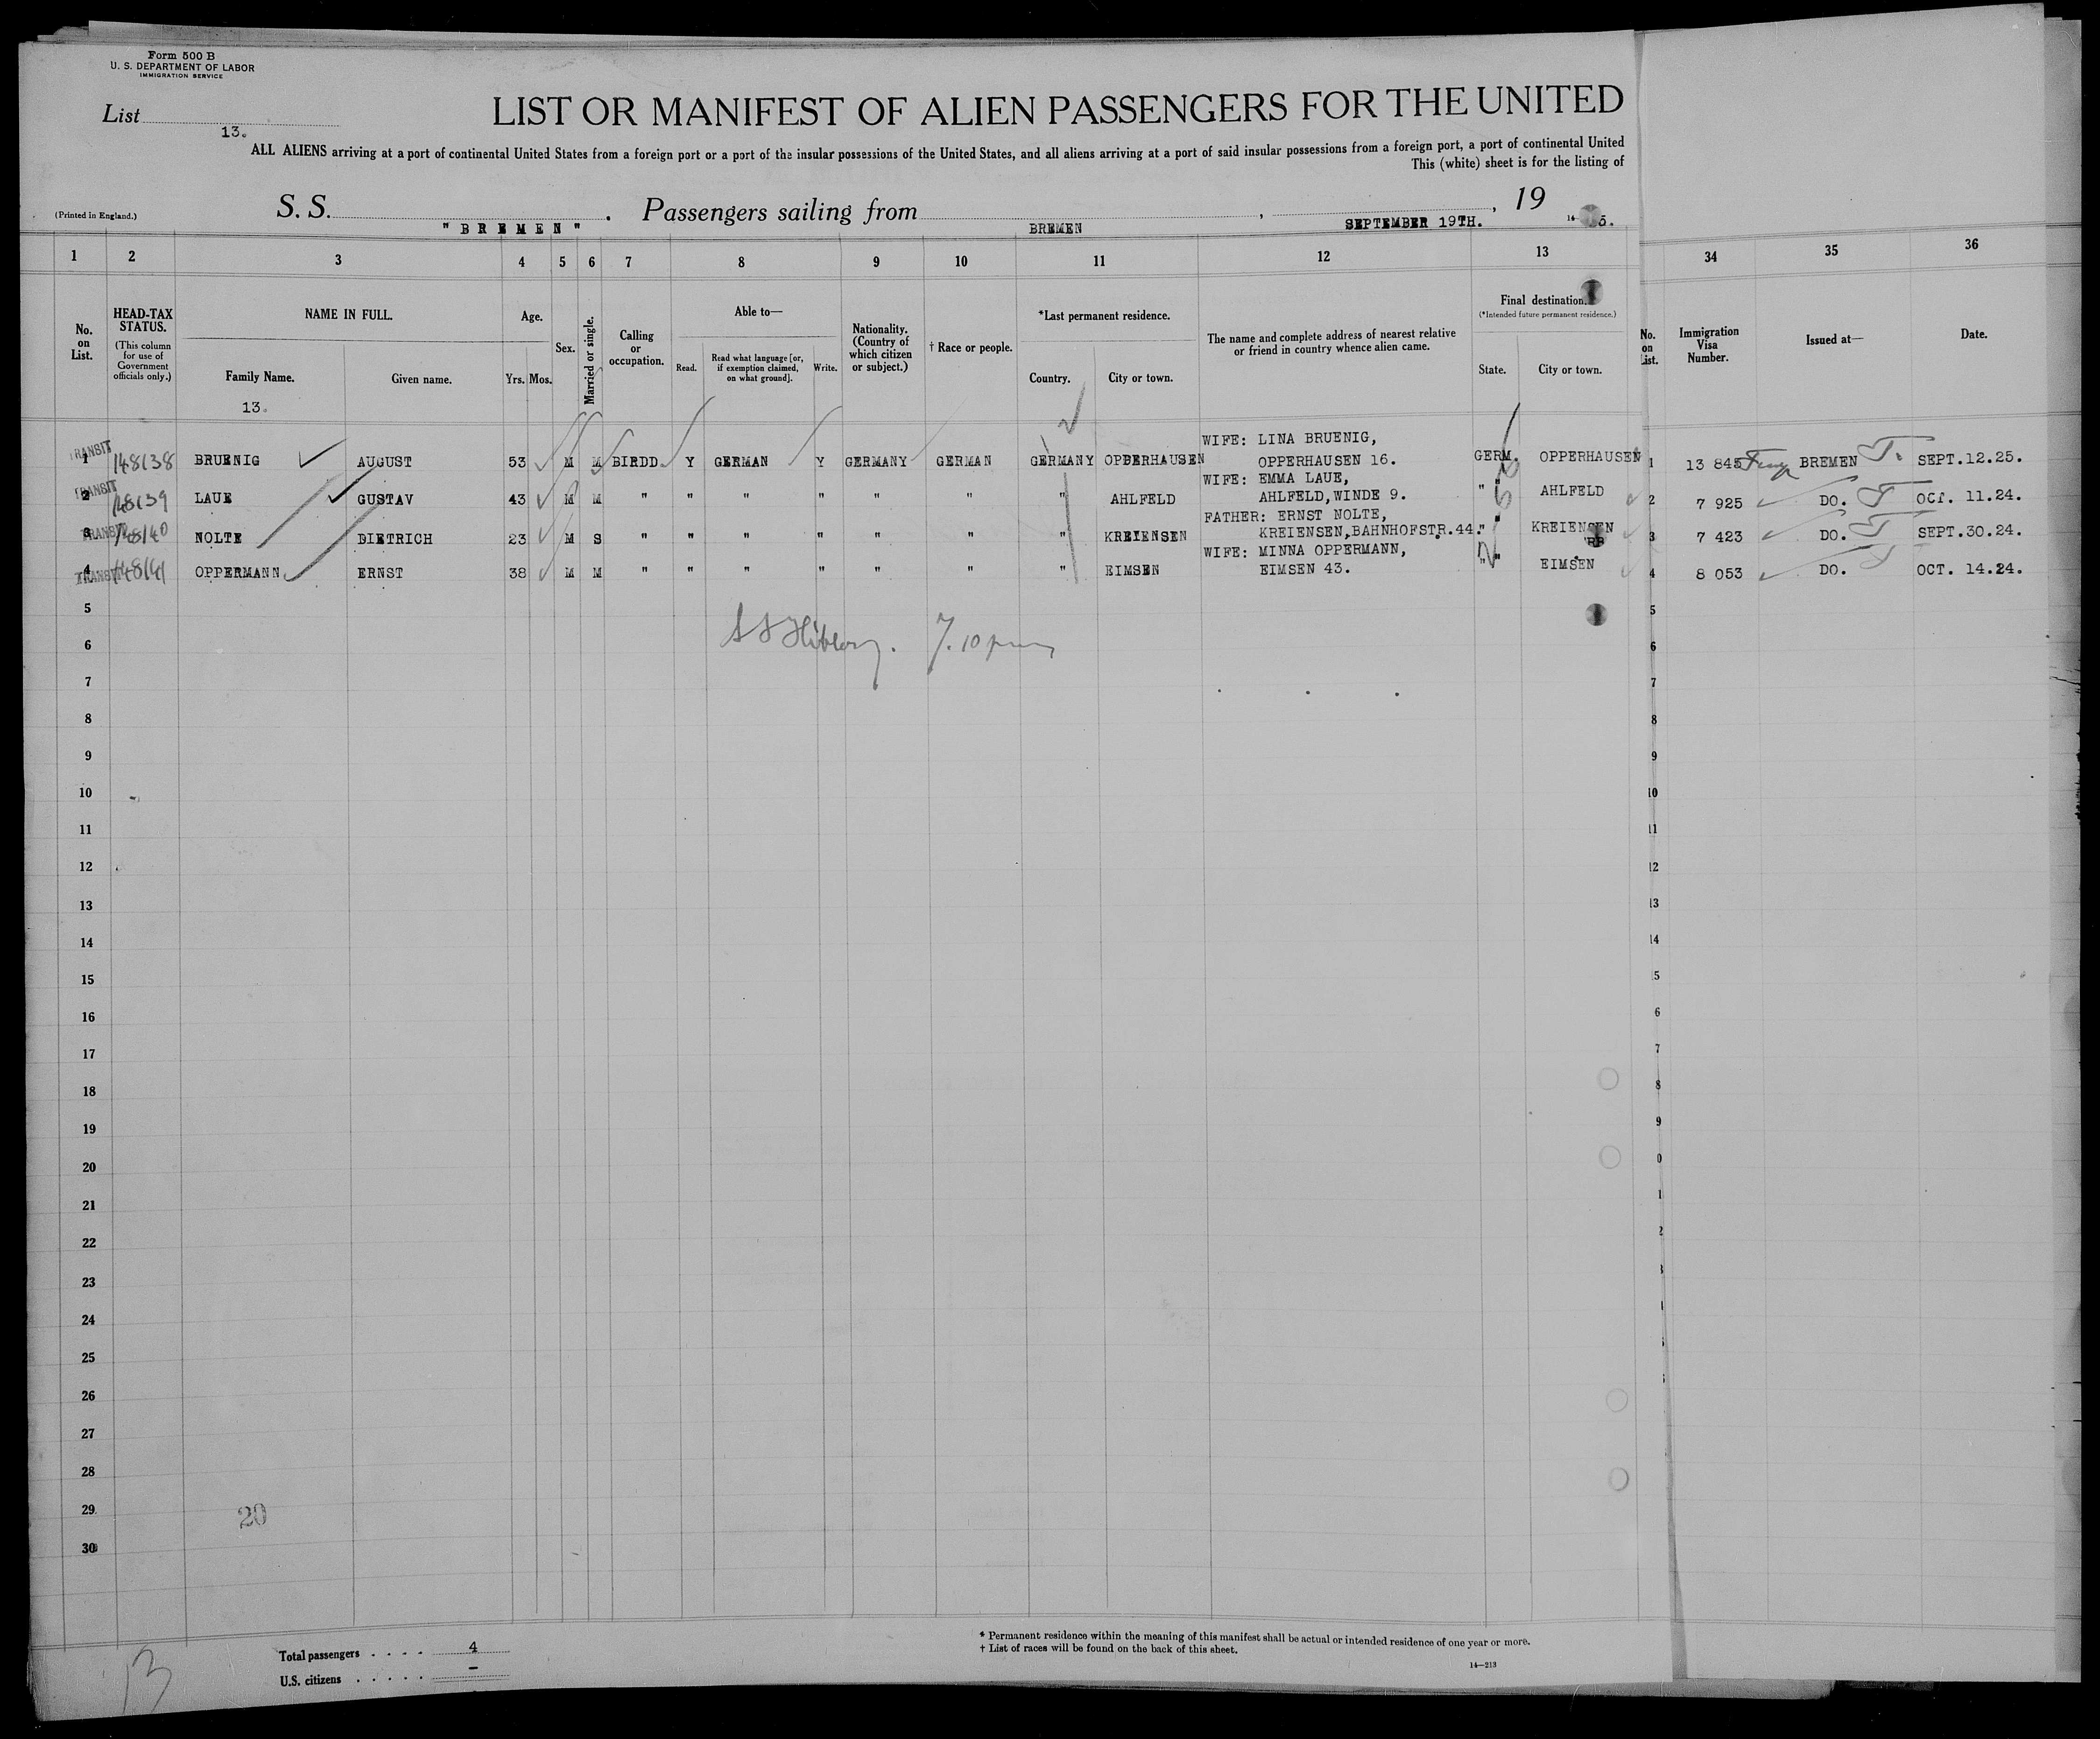 Form 500 B
U. S. DEPARTMENT OF LABOR
IMMIGRATION SERVICE
List
13.
LIST OR MANIFEST OF ALIEN PASSENGERS FOR THE UNITED
ALL ALIENS arriving at a port of continental United States from a foreign port or a port of the insular possessions of the United States, and all aliens arriving at a port of said insular possessions from a foreign port, a port of continental United
This (white) sheet is for the listing of
(Printed in England.)
S. S. "BREMEN". Passengers sailing from BREMEN, SEPTEMBER 19TH., 19 5.
1 2 3 4 5 6 7 8 9 10 11 12 13 34 35 36
No. on List.
HEAD-TAX STATUS.
(This column for use of Government officials only.)
NAME IN FULL.
Family Name.
Given name.
13.
Age.
Yrs. Mos.
Sex.
Married or single.
Calling or occupation.
Able to—
Read.
Read what language [or, if exemption claimed, on what ground].
Write.
Nationality. (Country of which citizen or subject.)
† Race or people.
*Last permanent residence.
Country.
City or town.
The name and complete address of nearest relative or friend in country whence alien came.
Final destination.
(*Intended future permanent residence.)
State.
City or town.
No. on List.
Immigration Visa Number.
Issued at—
Date.
TRANSIT
1 148138 BRUENIG AUGUST 53 M M BIRDD. Y GERMAN Y GERMANY GERMAN GERMANY OPPERHAUSEN WIFE: LINA BRUENIG, OPPERHAUSEN 16. GERM. OPPERHAUSEN 1 13 845 BREMEN SEPT.12.25.
TRANSIT
2 148139 LAUE GUSTAV 43 M M " " " " " " " AHLFELD WIFE: EMMA LAUE, AHLFELD,WINDE 9. " AHLFELD 2 7 925 DO. OCT. 11.24.
TRANSIT
3 148140 NOLTE DIETRICH 23 M S " " " " " " " KREIENSEN FATHER: ERNST NOLTE, KREIENSEN,BAHNHOFSTR.44. " KREIENSEN 3 7 423 DO. SEPT.30.24.
TRANSIT
4 148141 OPPERMANN ERNST 38 M M " " " " " " " EIMSEN WIFE: MINNA OPPERMANN, EIMSEN 43. " EIMSEN 4 8 053 DO. OCT. 14.24.
5 5
6 7.10 pm 6
7 7
8 8
9 9
10 10
11 11
12 12
13 13
14 14
15 5
16 6
17 7
18 8
19 9
20 0
21 1
22 2
23
24
25
26
27
28
29
20
30
13
Total passengers . . . . 4
U.S. citizens . . . . . –
* Permanent residence within the meaning of this manifest shall be actual or intended residence of one year or more.
† List of races will be found on the back of this sheet.
14—213